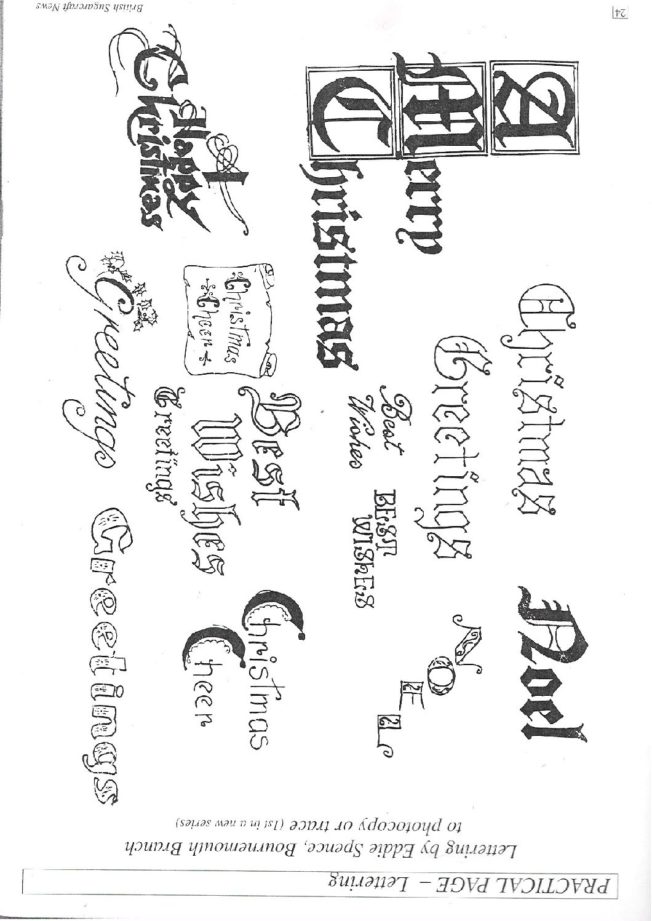 PRACTICAL PAGE – Lettering
Lettering by Eddie Spence, Bournemouth Branch
to photocopy or trace (1st in a new series)
A
Merry
Christmas
Christmas
Greetings
Noel
NOEL
Best
Wishes
BEST
WISHES
A
Happy
Christmas
Christmas
Cheer
Best
Wishes
Greetings
Christmas
Cheer
Greetings
Greetings
24
British Sugarcraft News